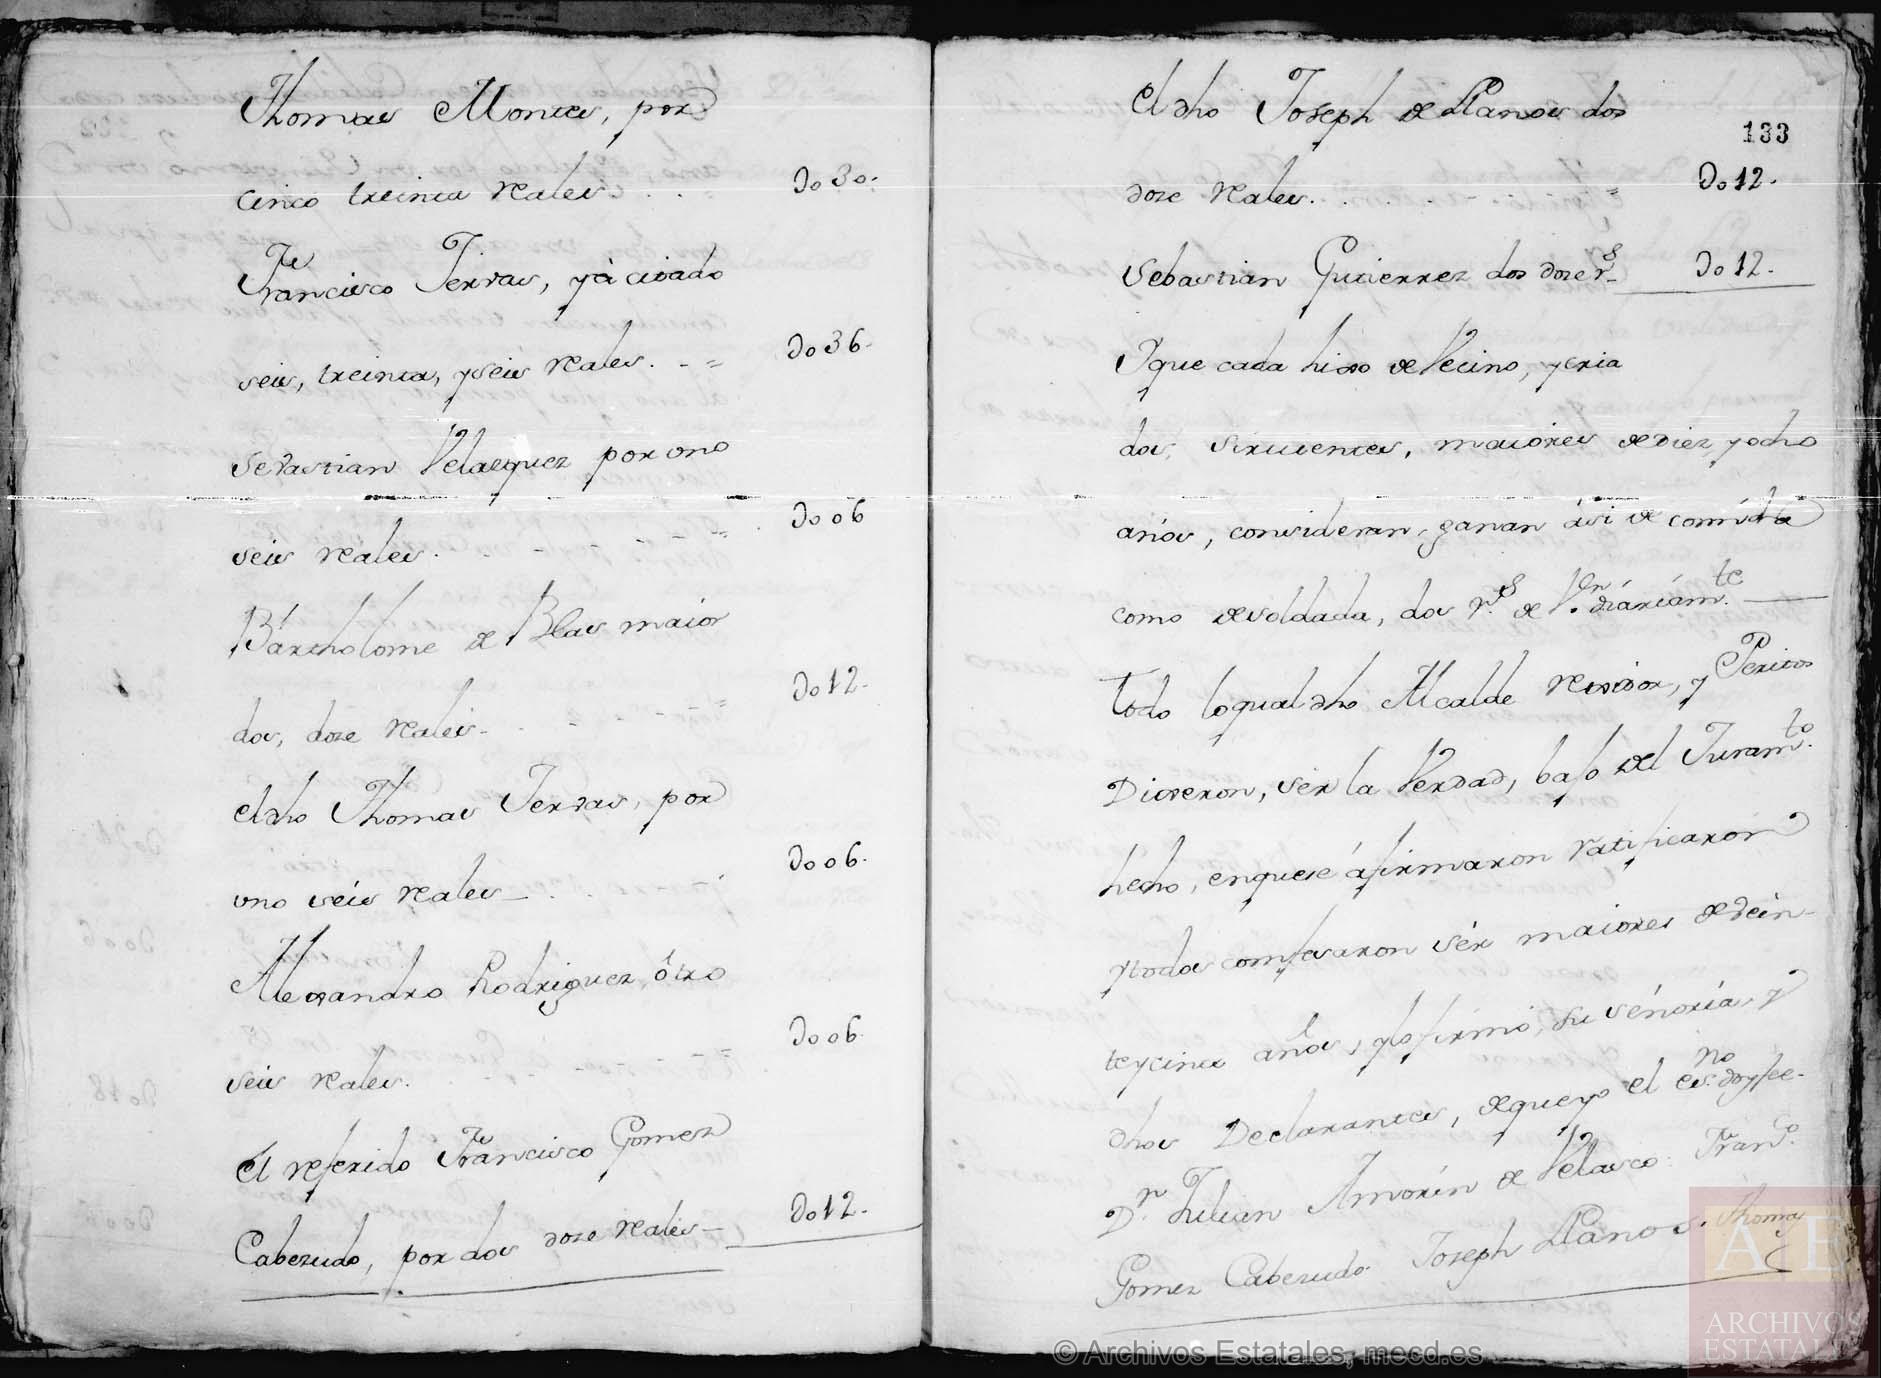 Thomas Montes, por
cinco treinta reales . . .
Do30.
Francisco Jervas, ya citado
seis, treinta, y seis reales. - =
Do36.
Sevastian Velazquez por uno
seis reales.
Do06
Bartholome de Blas maior
dos, doze reales - . . -
Do12.
el dho Thomas Jervas, por
uno seis reales - . .
Do06.
Alexandro Rodriguez, ôtro
seis reales.
Do06
el referido Francisco Gomez
Cabezudo, por dos doze reales -
Do12.
el dho Joseph de Llanos dos
133
doze reales. . . . - =
Do12.
Sebastian Gutierrez dos doze rS
Do12.
Y que cada hixo de Vecino, y cria
dos, sirvientes, maiores de diez y ocho
años, consideran, ganan ási de comida
como de soldada, dos r.S de V.on diáriam.te
Todo lo qual dho Alcalde rexidor, y Peritos
Dixeron, ser la Verdad, bajo del Juram.to
hecho, en que se áfirmaron ratificaron
y todos confesaron sér maiores de vein-
te y cinco años, y lo firmó, su señoría, y
dhos Declarantes, de que yo el es.no doy fee.
D.n Julian Amorín de Velasco. Fran.co
Gomez Cabezudo. Joseph Llanos. Thomas
A E
ARCHIVOS
ESTATALES
© Archivos Estatales, mecd.es